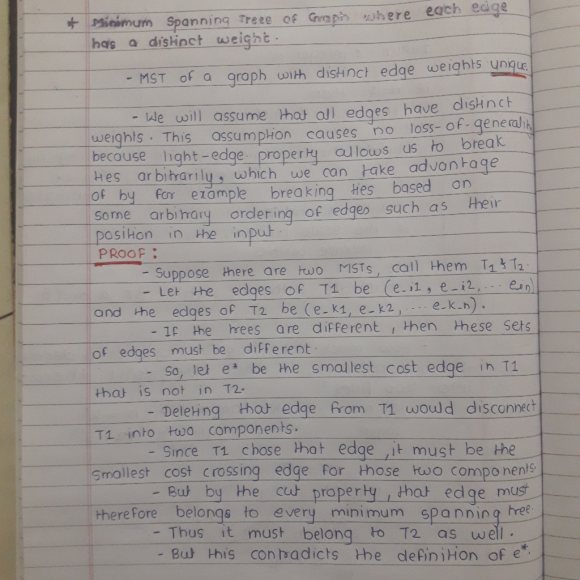 * Minimum Spanning Trees of Graph where each edge
has a distinct weight.
- MST of a graph with distinct edge weights unque
- We will assume that all edges have distinct
weights. This assumption causes no loss-of-generality
because light-edge property allows us to break
ties arbitrarily, which we can take advantage
of by for example breaking ties based on
some arbitrary ordering of edges such as their
position in the input.
PROOF:
- Suppose there are two MSTs, call them T1 & T2.
- Let the edges of T1 be (e-i1, e-i2, ... ein)
and the edges of T2 be (e-k1, e-k2, .... e-k-n).
- If the trees are different, then these sets
of edges must be different.
- So, let e* be the smallest cost edge in T1
that is not in T2.
- Deleting that edge from T1 would disconnect
T1 into two components.
- Since T1 chose that edge, it must be the
smallest cost crossing edge for those two components
- But by the cut property, that edge must
therefore belongs to every minimum spanning tree.
- Thus it must belong to T2 as well.
- But this contradicts the definition of e*.